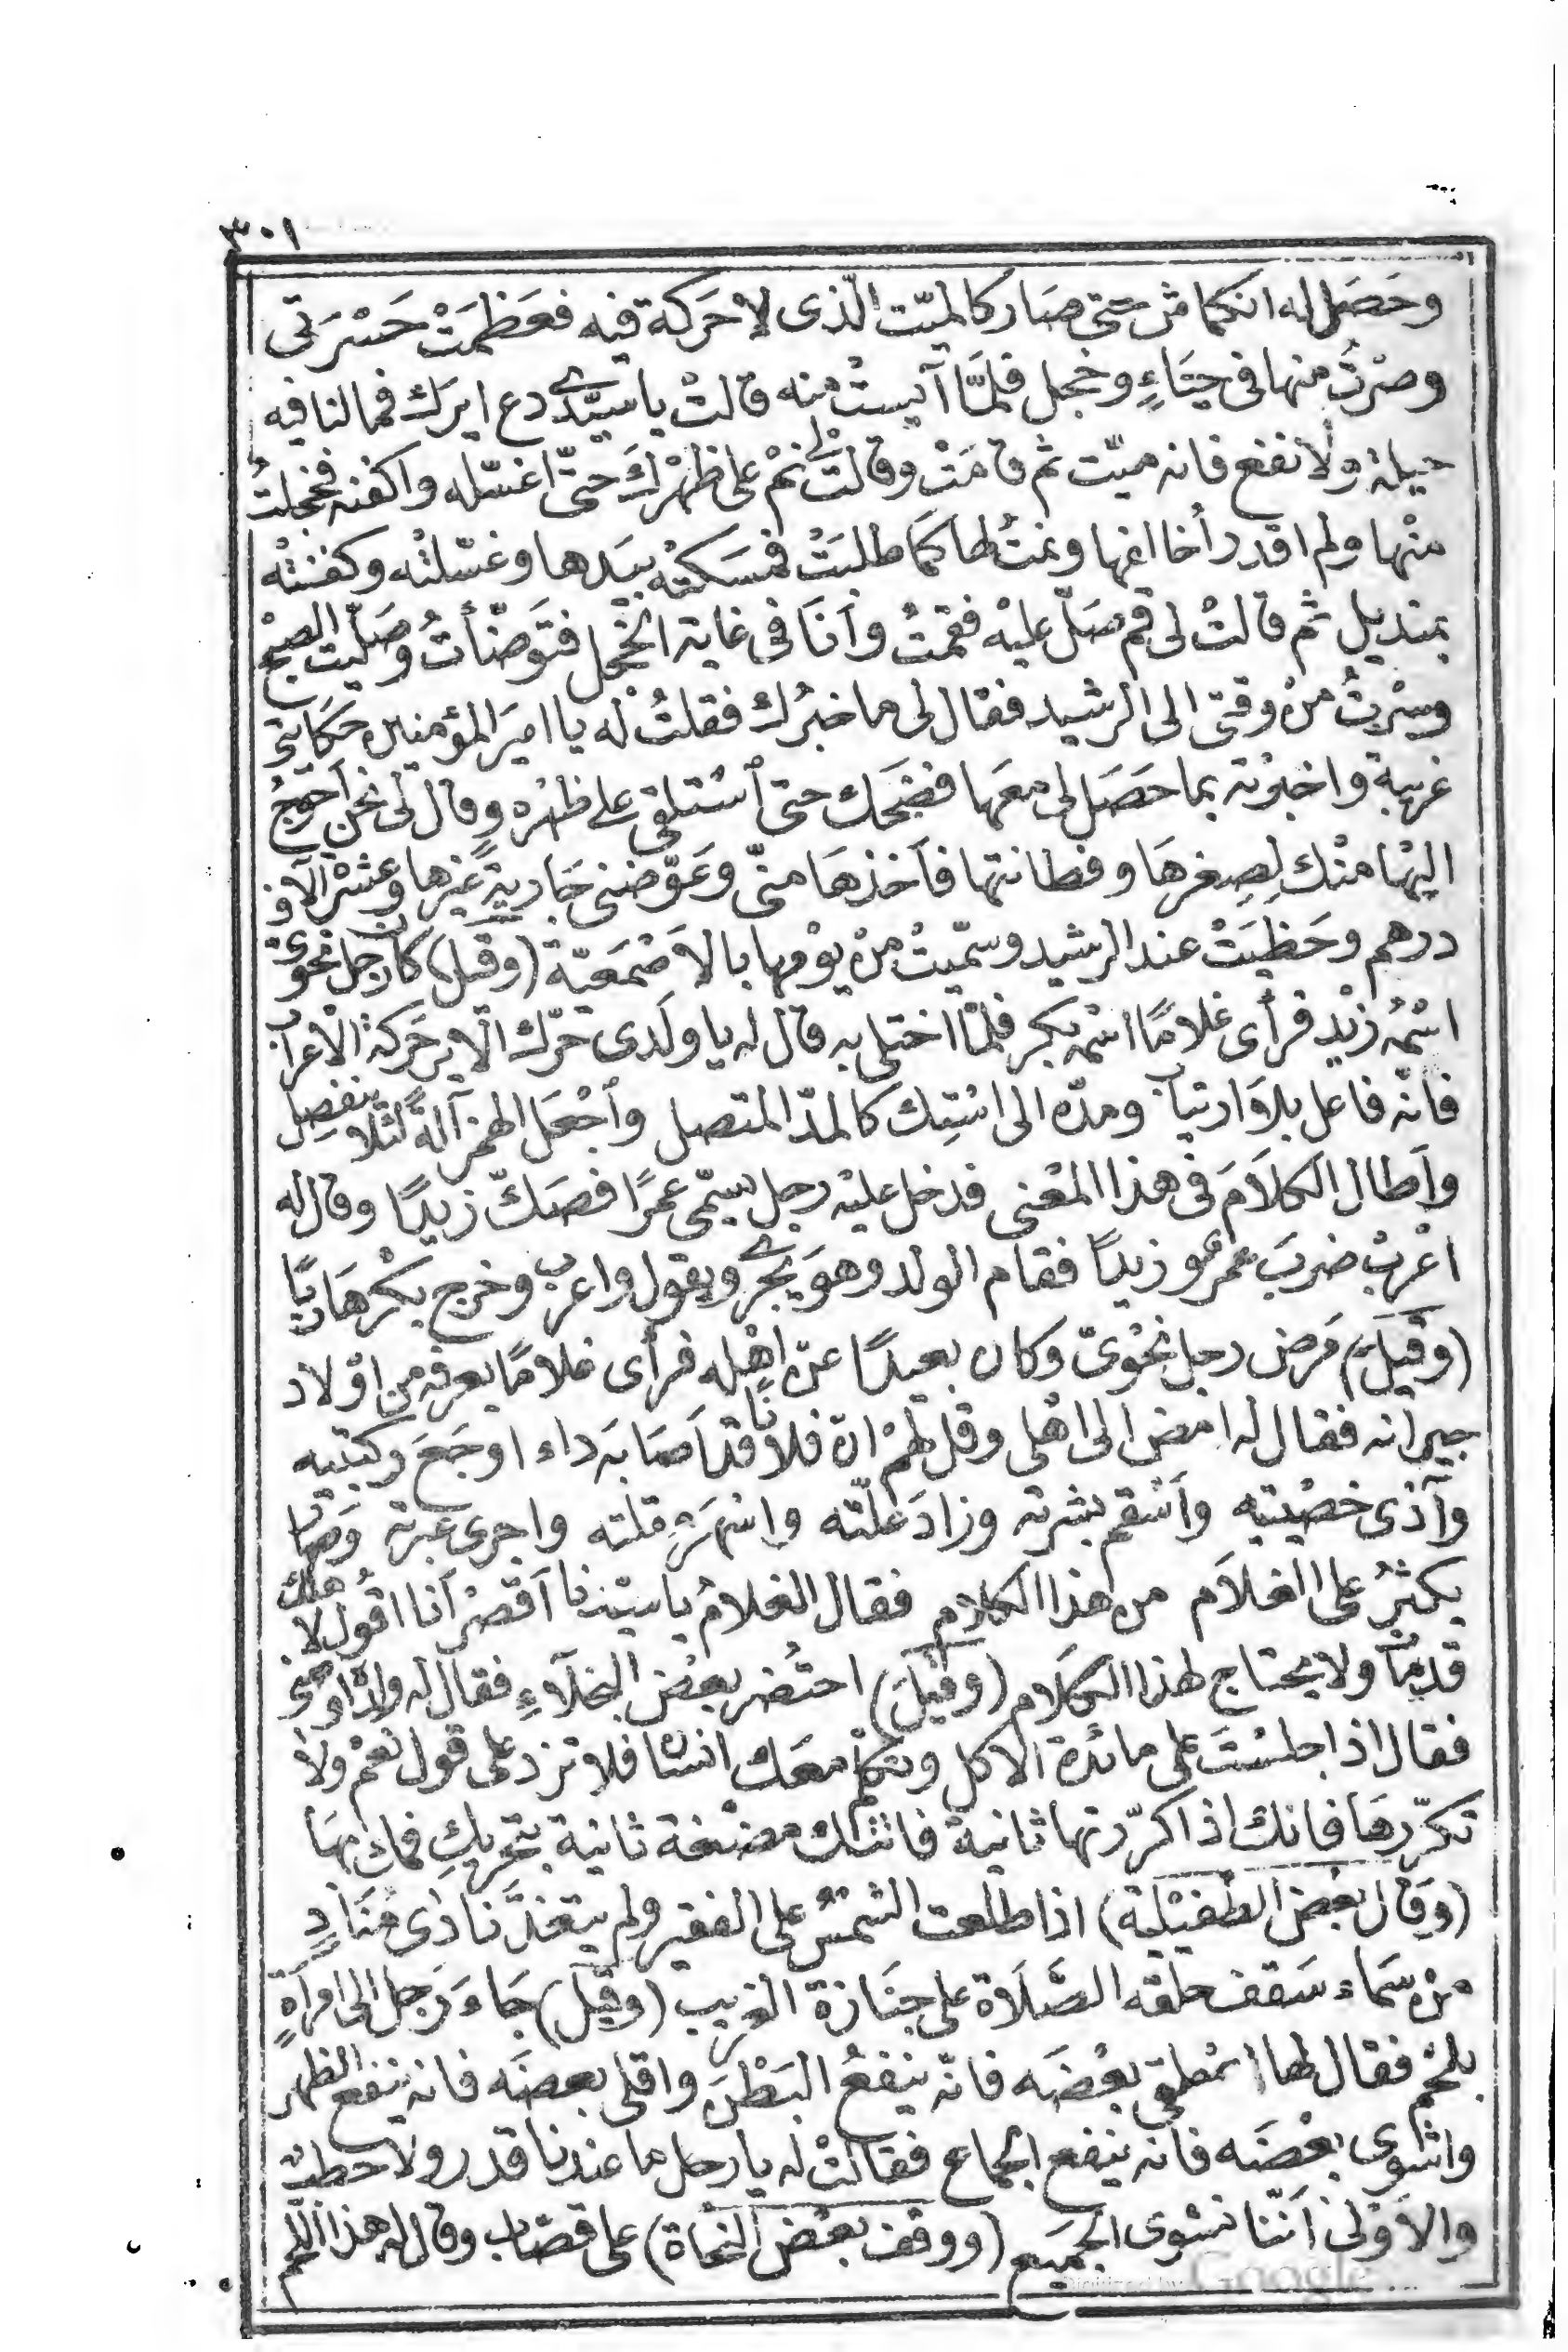 ٣٠١
وحَصَل له انكماش حتى صَار كالميّت الّذى لا حَرَكة فيه فعَظمَتْ حَسْرَتى
وصْرتُ منها فى حيَاءٍ وخجل فلمّا آيستْ منه قالتْ يا سيّدى دع ايرك فما لنا فيه
حيلة ولا نفع فانه ميّت ثم قامَتْ وقالتْ لى نمْ على ظهْرك حتّى اغسّله واكفنه فخجلتُ
منْها ولم اقدر أخالفها ونمتُ لها كما طلبَتْ فمسَكتْه بيَدها وغسّلتْه وكفنتْه
بمنديل ثم قالتْ لى قم صَلّ عليْه فقمتُ وأنَا فى غاية الخجل فتَوَضّأتُ وصَلّيت الصبح
وسِرْتُ منْ وقتى الى الرشيد فقال لى ما خبرُك فقلتُ له يا اميَر المؤمنين حكايَتى
غريبة واخبرْته بما حَصَل لى معَها فضَحَك حتى أسْتلقى على ظهْره وقال لى نحن أحوَجُ
اليْها منْك لِصِغرهَا وفطانتها فأخذهَا منّى وعَوّضنى جَارية غيْرها وعشْر آلاف
درهم وحَظِيَتْ عند الرشيد وسمّيتْ منْ يوْمها بالأصْمَعيّة (وقيل) كان رجل نحوىّ
اسْمُه زيْد فرأى غلامًا اسْمه بكر فلمّا اختلى به قال له يا ولَدى حَرّك الاير حَرَكة الاعراب
فانّه فاعل بلا ارتياب ومدّه الى اسْتِك كالمدّ المتصل وأجْعَل الهمز آلةً لئلا ينفصِل
وأطال الكلاَمَ فى هذا المعْنى فدخل عليْه رجل يسمّى عمرًا فصَكّ زيدًا وقال له
اعْربْ ضربَ عمرو زيدًا فقام الولد وهوَ يجرى ويقول واعرب وخرج بكْر هَاربًا
(وقيلَ) مَرض رجل نحْوىّ وكان بعيدًا عنْ اهْله فرأى غلامًا يعرفه من اوْلاد
جيرانه فقال له امض الى اهْلى وقل لهمْ انّ فلانًا قد أصَابَه داء اوجَعَ ركبتيه
وآذى خصْيتيه وأسْقم بشرته وزادَ علّته واسْهَرَ مقلته واجرى عبرته وَصَار
يكثرُ على الغلاَم من هذا الكلام فقال الغلامُ يا سيّدنا أقصرْ أنا اقول لاهْلك
قد مات ولا يحتاج لهذا الكَلام (وقيلَ) احتُضر بعْض البخلآءِ فقال له ولده أوصنى
فقال اذا جلسْتَ على مائدة الاكل وتكلم معَك انسان فلا تزد على قول نعَمْ ولا
تكرّرهَا فانك اذا كرّرتها ثانية فاتتْك مضْغة ثانية بتحريكِ فمك بهَا
(وَقال بعْض الطفيْليّة) اذا طلعت الشمْسُ على الفقير ولم يتغدَّ نادَى مُنَادٍ
منْ سَماء سَقف حلقه الصَّلاَة على جنَازة الغريب (وقيل) جَاءَ رَجل الى امْرأةٍ
بلحْم فقال لها اسْلقى بعْضَه فانّه ينفعُ البَطْنَ واقلى بعضَه فانه ينفع الظهر
واشْوى بعْضَه فانه ينفع الجماع فقالتْ له يا رجل ما عندنا قدر ولا حطب
والأوْلى أنّنا نشوى الجميع (ووقف بعْض النحْاة) على قصّاب وقال له هذا اللحم